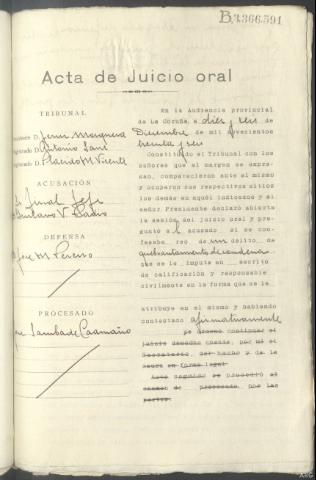 B.4.366.591
Acta de Juicio oral
TRIBUNAL
D. Jenn Mosquera
D. Antonio Sanz
D. Placido M. Vicente
ACUSACIÓN
Sr. Fiscal Jefe
Gustavo V.
DEFENSA
José M. Pereiro
PROCESADO
Sambade Caamaño
En la Audiencia provincial
de La Coruña, a diez y seis de
Diciembre de mil novecientos
treinta y seis
Constituido el Tribunal con los
señores que al margen se expre-
san, comparecieron ante el mismo
y ocuparon sus respectivos sitios
los demás en aquél indicados y el
señor Presidente declaró abierta
la sesión del juicio oral y pre-
guntó al acusado si se con-
fesaba reo de un delito de
quebrantamiento de condena
que se le imputa en escrito
de calificación y responsable
civilmente en la forma que se le
atribuye en el mismo y habiendo
contestado afirmativamente
se acordó continuar el
juicio dándose cuenta, por mí el
Secretario, del hecho y de la
causa en forma legal
Acto seguido se procedió al
examen de procesado por las
partes.